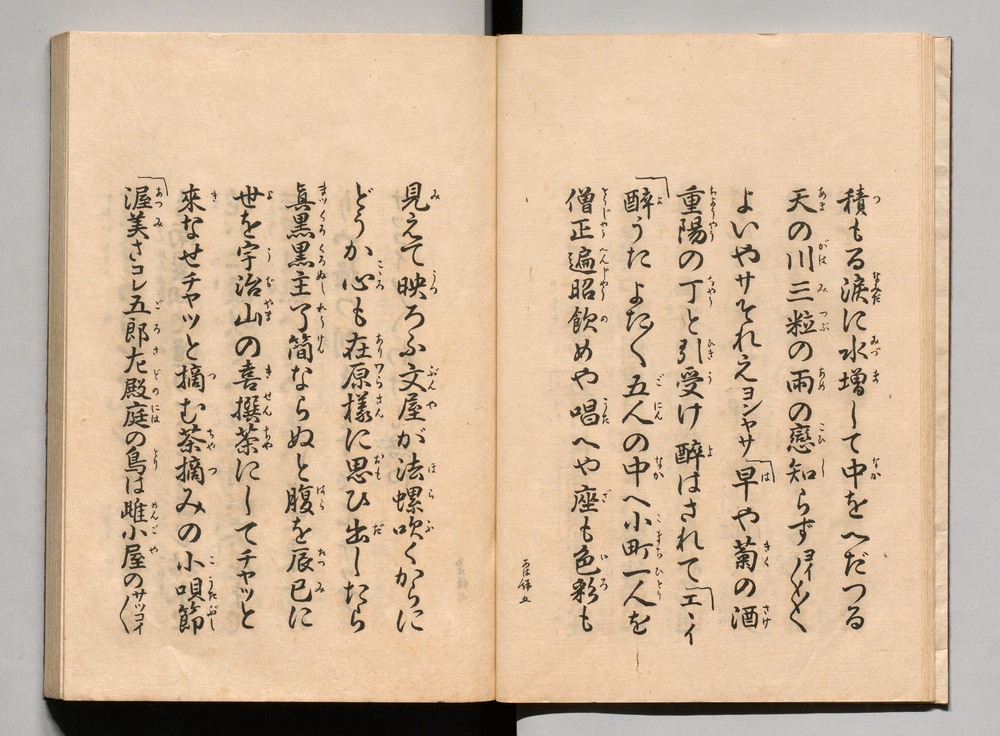 積もる涙に水増して中をへだつる
天の川三粒の雨の戀知らずヨイ〳〵〳〵と
よいやサそれえヨンヤサ「早や菊の酒
重陽の丁と引受け醉はされて「エヽイ
「醉うたよたく五人の中へ小町一人を
僧正遍昭飲めや唱へや座も色彩も
見えて映ろふ文屋が法螺吹くからに
どうか心も在原樣に思ひ出したら
眞黒黒主了簡ならぬと腹を辰巳に
世を宇治山の喜撰茶にしてチャッと
來なせチャッと摘む茶摘みの小唄節
「渥美さコレ五郎左殿庭の鳥は雌小屋のサッコイ〳〵